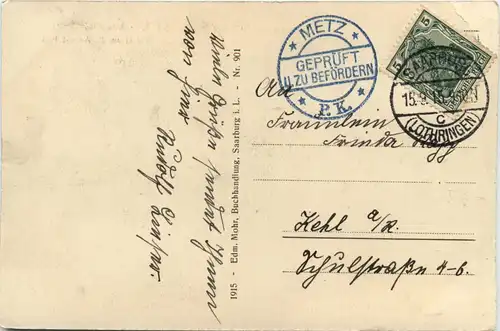 Viele Grüße sendet Ihnen
von hier
Rudolf
1915 - Edm. Mohr, Buchhandlung, Saarburg i. L. - Nr. 901
METZ
GEPRÜFT
U. ZU BEFÖRDERN
P.K.
5 5
SAARBURG
15.9.
C
(LOTHRINGEN)
An
Fräulein
Frieda
Kehl a/R.
Schulstraße 4-6.